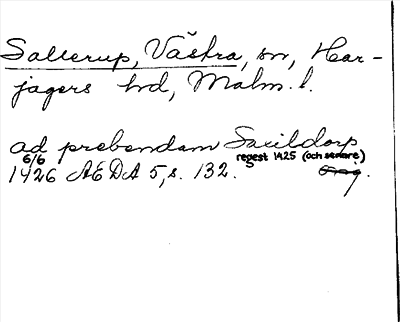 Sallerup, Västra, sn, Har-
jagers hd, Malm. l.
ad prebendam Saxildorp
6/6 regest 1425 (och senare)
1426 AEDA 5, s. 132. Orig.